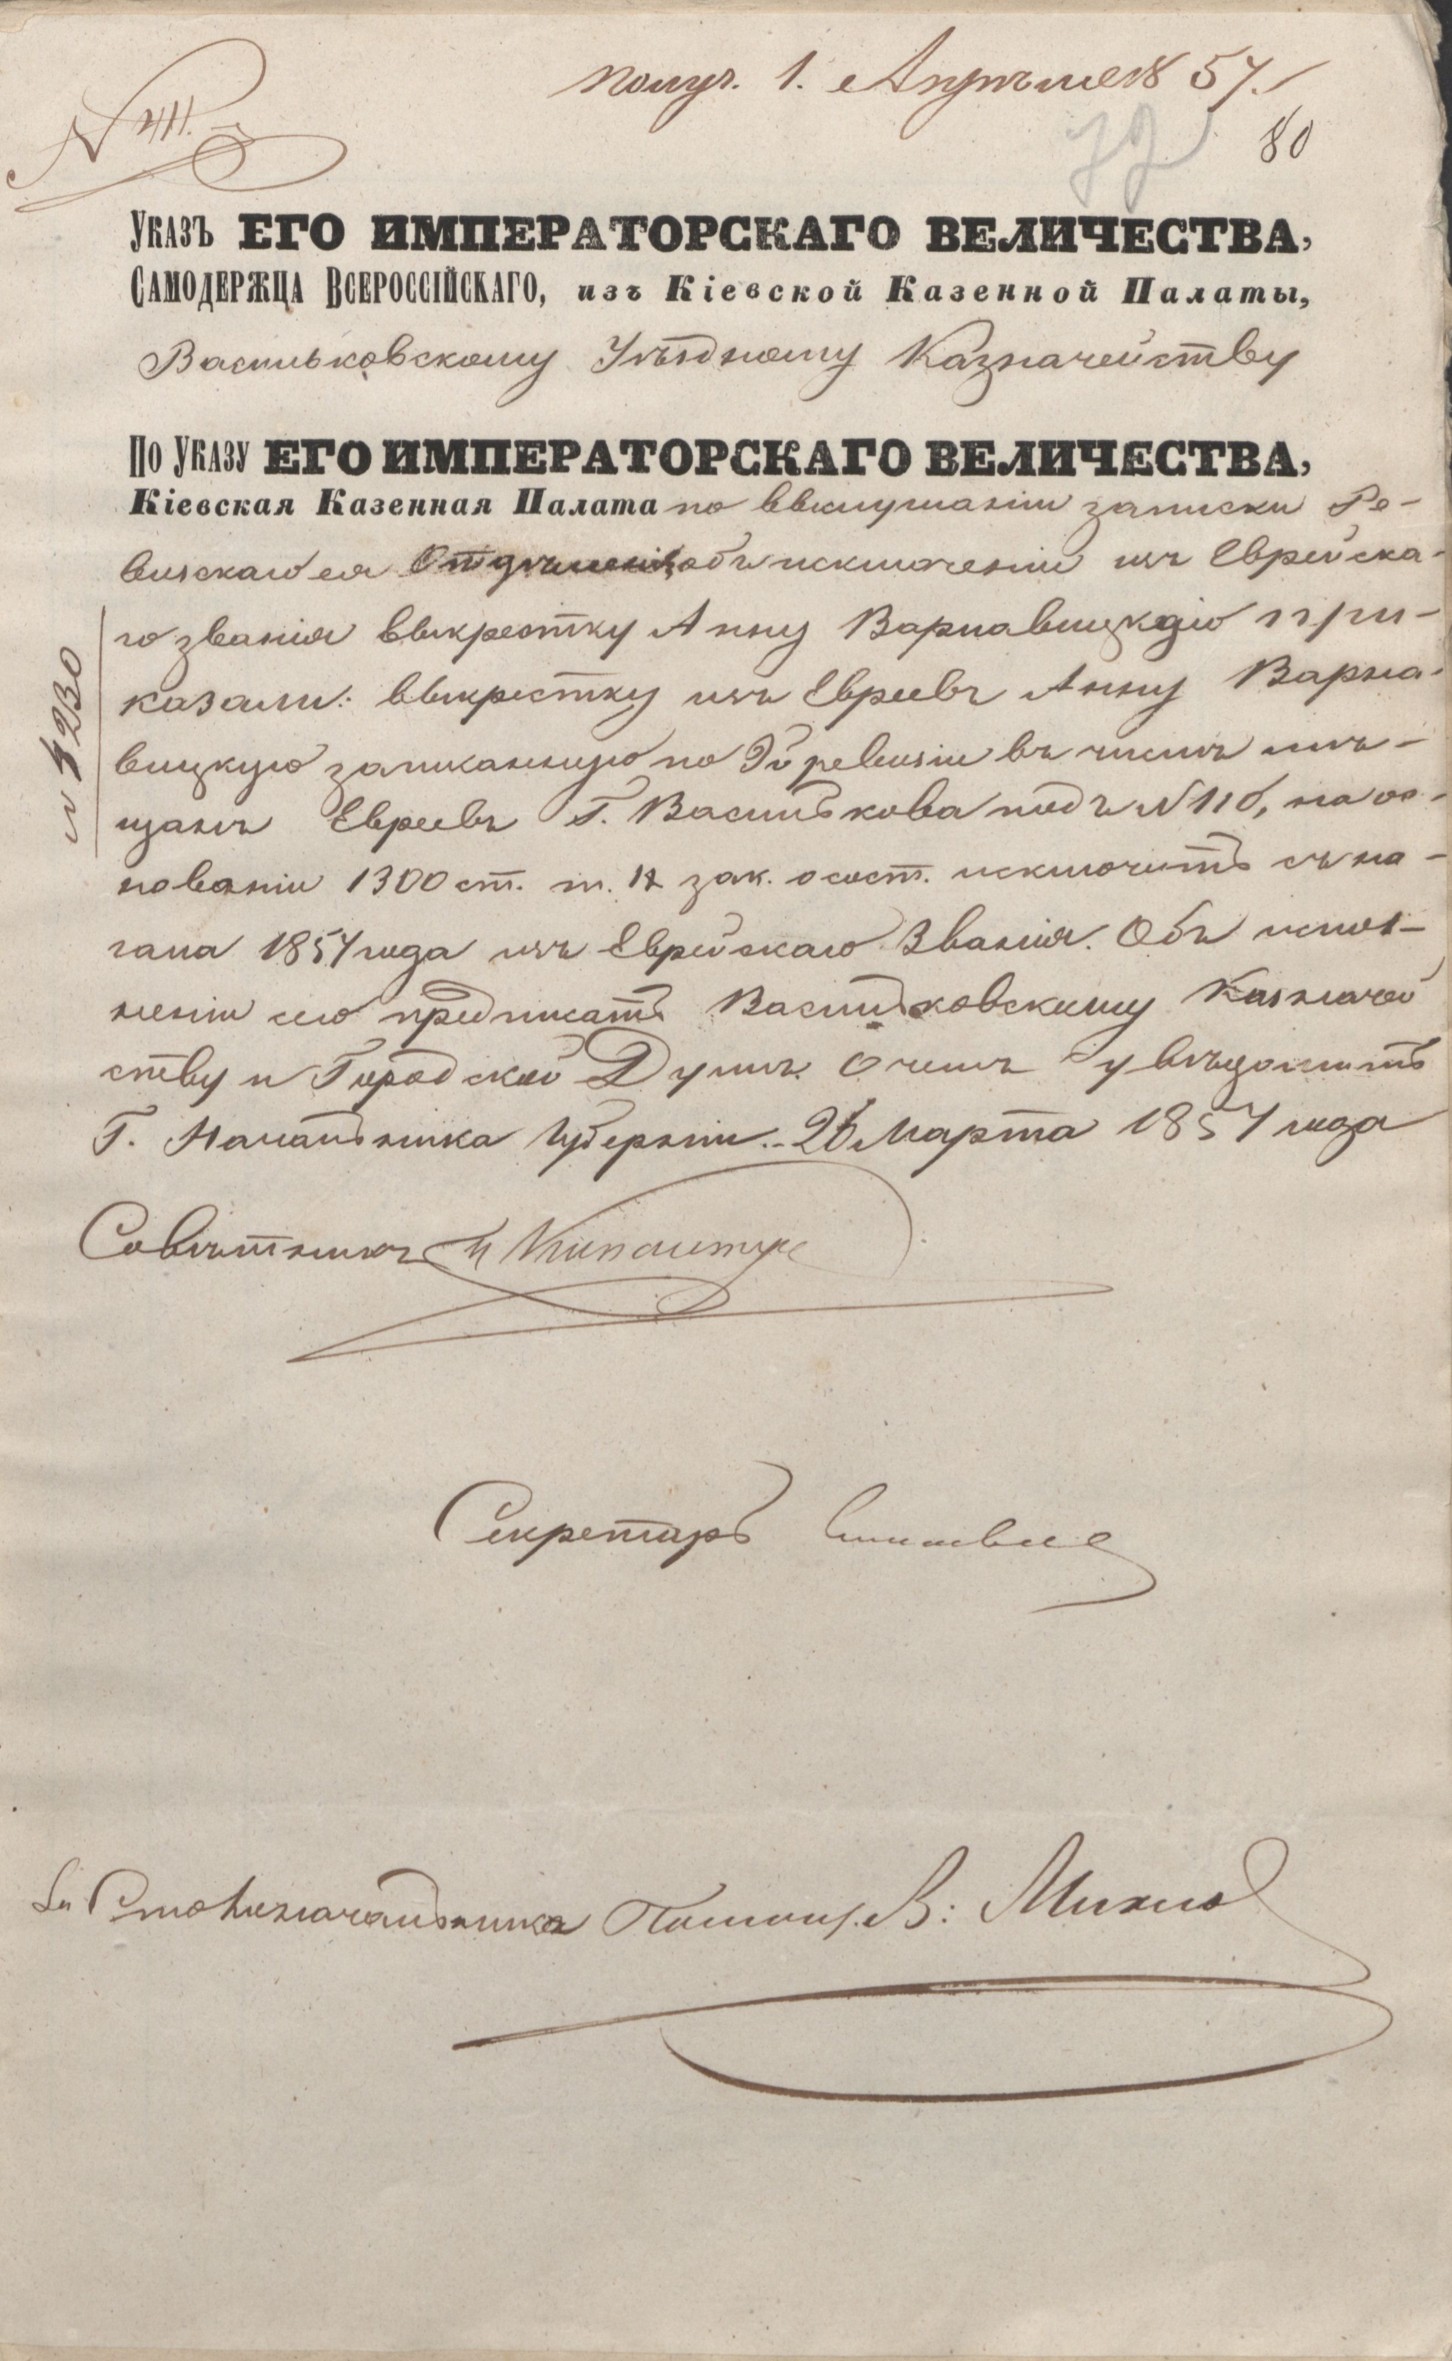 получ. 1. Апрѣля 1857.
80
72
Указъ ЕГО ИМПЕРАТОРСКАГО ВЕЛИЧЕСТВА,
Самодержца Всероссійскаго, изъ Кіевской Казенной Палаты,
Васильковскому Уѣздному Казначейству
По Указу ЕГО ИМПЕРАТОРСКАГО ВЕЛИЧЕСТВА,
Кіевская Казенная Палата по выслушаніи записки Ре-
визскаго ея Отдѣленія, объ исключеніи изъ Еврейска-
го званія выкрестку Анну Варнавицкую при-
казали: выкрестку изъ Евреевъ Анну Варна-
вицкую записанную по ревизіи въ числѣ мѣ-
щанъ Евреевъ Г. Василькова подъ №116, на ос-
нованіи 1300 ст. т. зак. о сост. исключить съ на-
чала 1857 года изъ Еврейскаго Званія. Объ испол-
неніи сего предписать Васильковскому Казначей
ству и Городской Думѣ о чемъ увѣдомить
Г. Начальника Губерніи. 26 Марта 1857 года
№ 4230
Совѣтникъ
Секретарь
За Столоначальника Помощ. В: